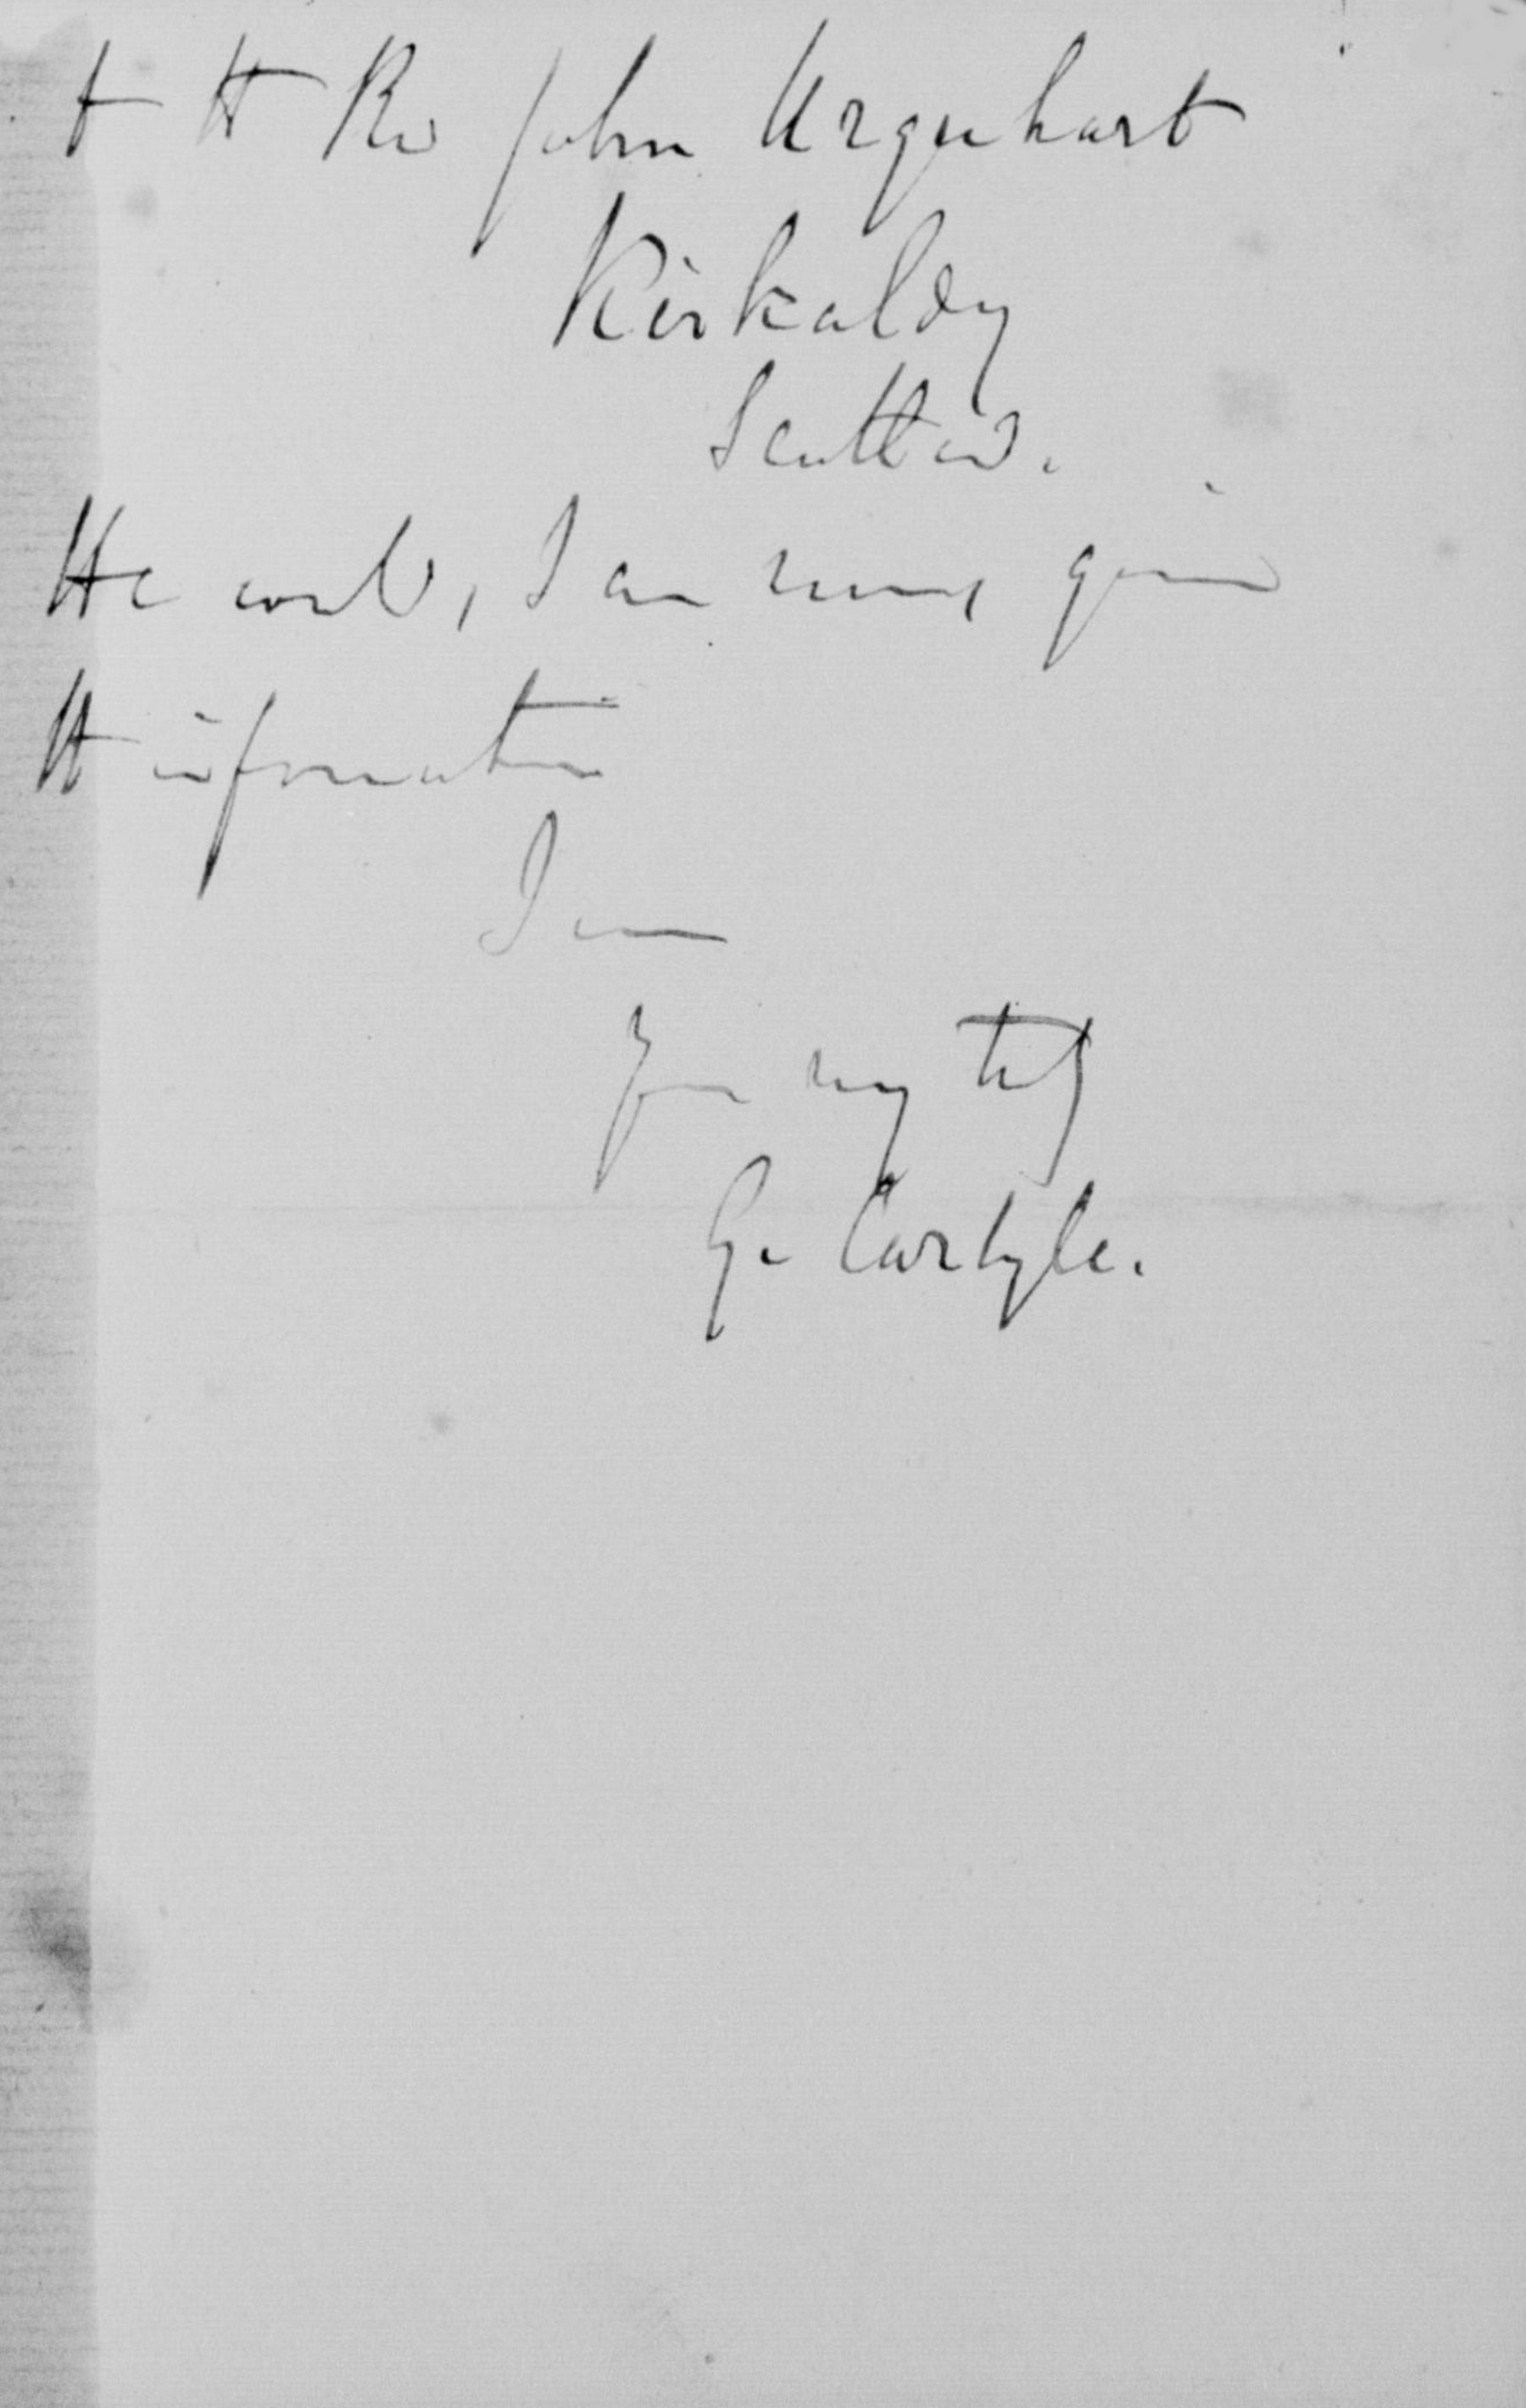 to the Rev John Urquhart
Kirkaldy
Scotland.
He could, I am sure, give
the information
I am
Yours very truly
G. Carlyle.